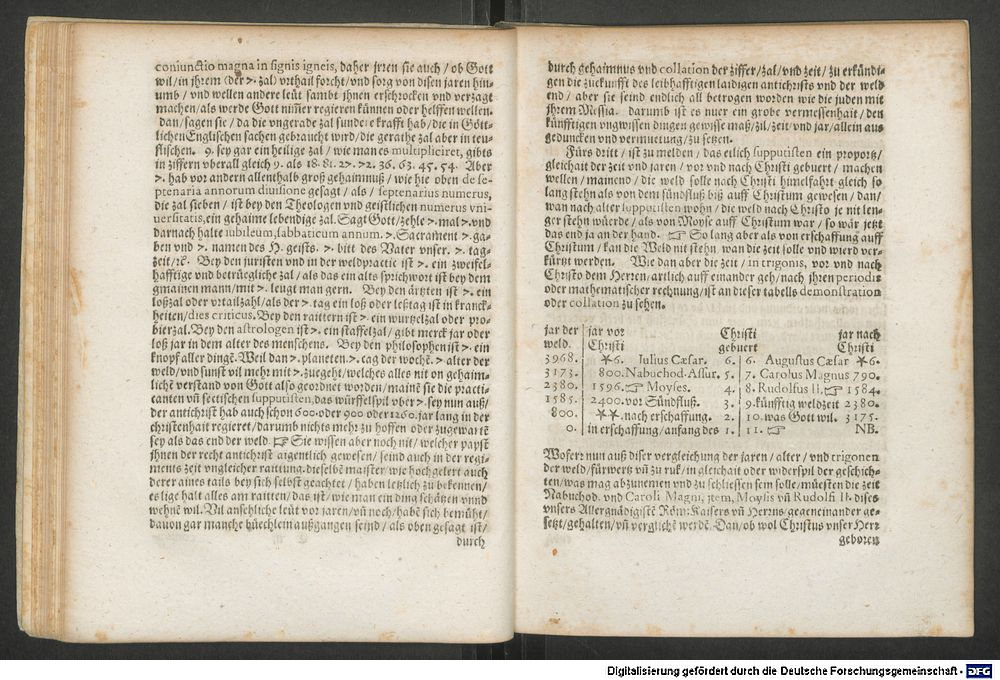 coniunctio magna in signis igneis, daher jrren sie auch / ob Gott
wil / in jhrem (der 7. zal) vrthail forcht / vnd sorg von disen jaren hin-
umb / vnd wellen andere leüt sambt jhnen erschrocken vnd verzagt
machen / als werde Gott nim̃er regieren künnen oder helffen wellen.
dan / sagen sie / da die vngerade zal sundere krafft hab / die in Gött-
lichen Englischen sachen gebraucht wird / die gerathe zal aber in teu-
flischen. 9. sey gar ein heilige zal / wie man es multipliciret, gibts
in ziffern vberall gleich 9. als 18. 81. 27. 72. 36. 63. 45. 54. Aber
7. hab vor andern allenthalb groß gehaimnuß / wie hie oben de se-
ptenaria annorum diuisione gesagt / als / septenarius numerus,
die zal sieben / ist bey den Theologen vnd geistlichen numerus vni-
uersitatis, ein gehaime lebendige zal. Sagt Gott / zehle 7. mal 7. vnd
darnach halte iubileum, sabbaticum annum. 7. Sacrament 7. ga-
ben vnd 7. namen des H. geists. 7. bitt des Vater vnser. 7. tag-
zeit / ꝛc. Bey den juristen vnd in der weldpractic ist 7. ein zweifel-
hafftige vnd betrüegliche zal / als das ein alts sprichwort ist bey dem
gmainen mann / mit 7. leugt man gern. Bey den ärtzten ist 7. ein
loßzal oder vrtailzahl / als der 7. tag ein loß oder leßtag ist in kranck-
heiten / dies criticus. Bey den raittern ist 7. ein wurtzelzal oder pro-
bierzal. Bey den astrologen ist 7. ein staffelzal / gibt merck jar oder
loß jar in dem alter des menschens. Bey den philosophen ist 7. ein
knopf aller dingẽ. Weil dan 7. planeten. 7. tag der wochẽ. 7 alter der
weld / vnd sunst vil mehr mit 7. zuegeht / welches alles nit on gehaim-
lichẽ verstand von Gott also geordnet worden / mainẽ sie die practi-
canten vñ sectischen supputisten, das würffelspil vber 7. sey nun auß /
der antichrist hab auch schon 600. oder 900 oder 1260. jar lang in der
christenhait regieret / darumb nichts mehr zu hoffen oder zugewartẽ
sey als das end der weld. ☞ Sie wissen aber noch nit / welcher papst
jhnen der recht antichrist aigentlich gewesen / seind auch in der regi-
ments zeit vngleicher raittung. dieselbẽ maister wie hochgelert auch
derer aines tails bey sich selbst geachtet / haben letzlich zu bekennen /
es lige halt alles am raitten / das ist / wie man ein ding schätzen vnnd
wehnẽ wil. Vil ansehliche leüt vor jaren / vñ noch / habẽ sich bemüht /
dauon gar manche büechlein außgangen seind / als oben gesagt ist /
durch
durch gehaimnus vnd collation der ziffer / zal / vnd zeit / zu erkündi-
gen die zuekunfft des leibhafftigen laidigen antichrists vnd der weld
end / aber sie seind endlich all betrogen worden wie die juden mit
jhrem Messia. darumb ist es nuer ein grobe vermessenhait / den
künfftigen vngwissen dingen gewisse maß / zil / zeit vnd jar / allein aus
gedüncken vnd vermuetung / zu setzen.
Fürs dritt / ist zu melden / das etlich supputisten ein proportz /
gleichait der zeit vnd jaren / vor vnd nach Christi gebuert / machen
wellen / mainend / die weld solle nach Christi himelfahrt gleich so
lang stehn als von dem sündfluß biß auff Christum gewesen / dan /
wan nach alter supputisten wohn / die weld nach Christo je nit len-
ger stehn würde / als von Moyse auff Christum war / so wär jetzt
das end ja an der hand. ☞ So lang aber als von erschaffung auff
Christum / kan die Weld nit stehn wan die zeit solle vnd wierd ver-
kürtzt werden. Wie dan aber die zeit / in trigonis, vor vnd nach
Christo dem Herren / artlich auff einander geh / nach jhren periodis
oder mathematischer rechnung / ist an dieser tabells demonstration
oder collation zu sehen.
jar der jar vor Christi jar nach
weld. Christi gebuert Christi
3968. *6. Iulius Cæsar. 6. 6. Augustus Cæsar *6.
3173. 800. Nabuchod. Assur. 5. 7. Carolus Magnus 790.
2380. 1596. ☞ Moyses. 4. 8. Rudolfus II. ☞ 1584.
1585. 2400. vor Sündfluß. 3. 9. künfftig weldzeit 2380.
800. **. nach erschaffung. 2. 10. was Gott wil. 3175.
0. in erschaffung / anfang des 1. 11. ☞ NB.
Wofern nun auß diser vergleichung der jaren / alter / vnd trigonen
der weld / fürwerts vñ zu ruk / in gleichait oder widerspil der geschich-
ten / was mag abzunemen vnd zu schliessen sein solle / müesten die zeit
Nabuchod. vnd Caroli Magni, jtem, Moysis vñ Rudolfi II. dises
vnsers Allergnädigistẽ Röm: Kaisers vñ Herrns / gegeneinander ge-
setzt / gehalten / vñ verglichẽ werdẽ. Dan / ob wol Christus vnser Herr
geboren
Digitalisierung gefördert durch die Deutsche Forschungsgemeinschaft - DFG